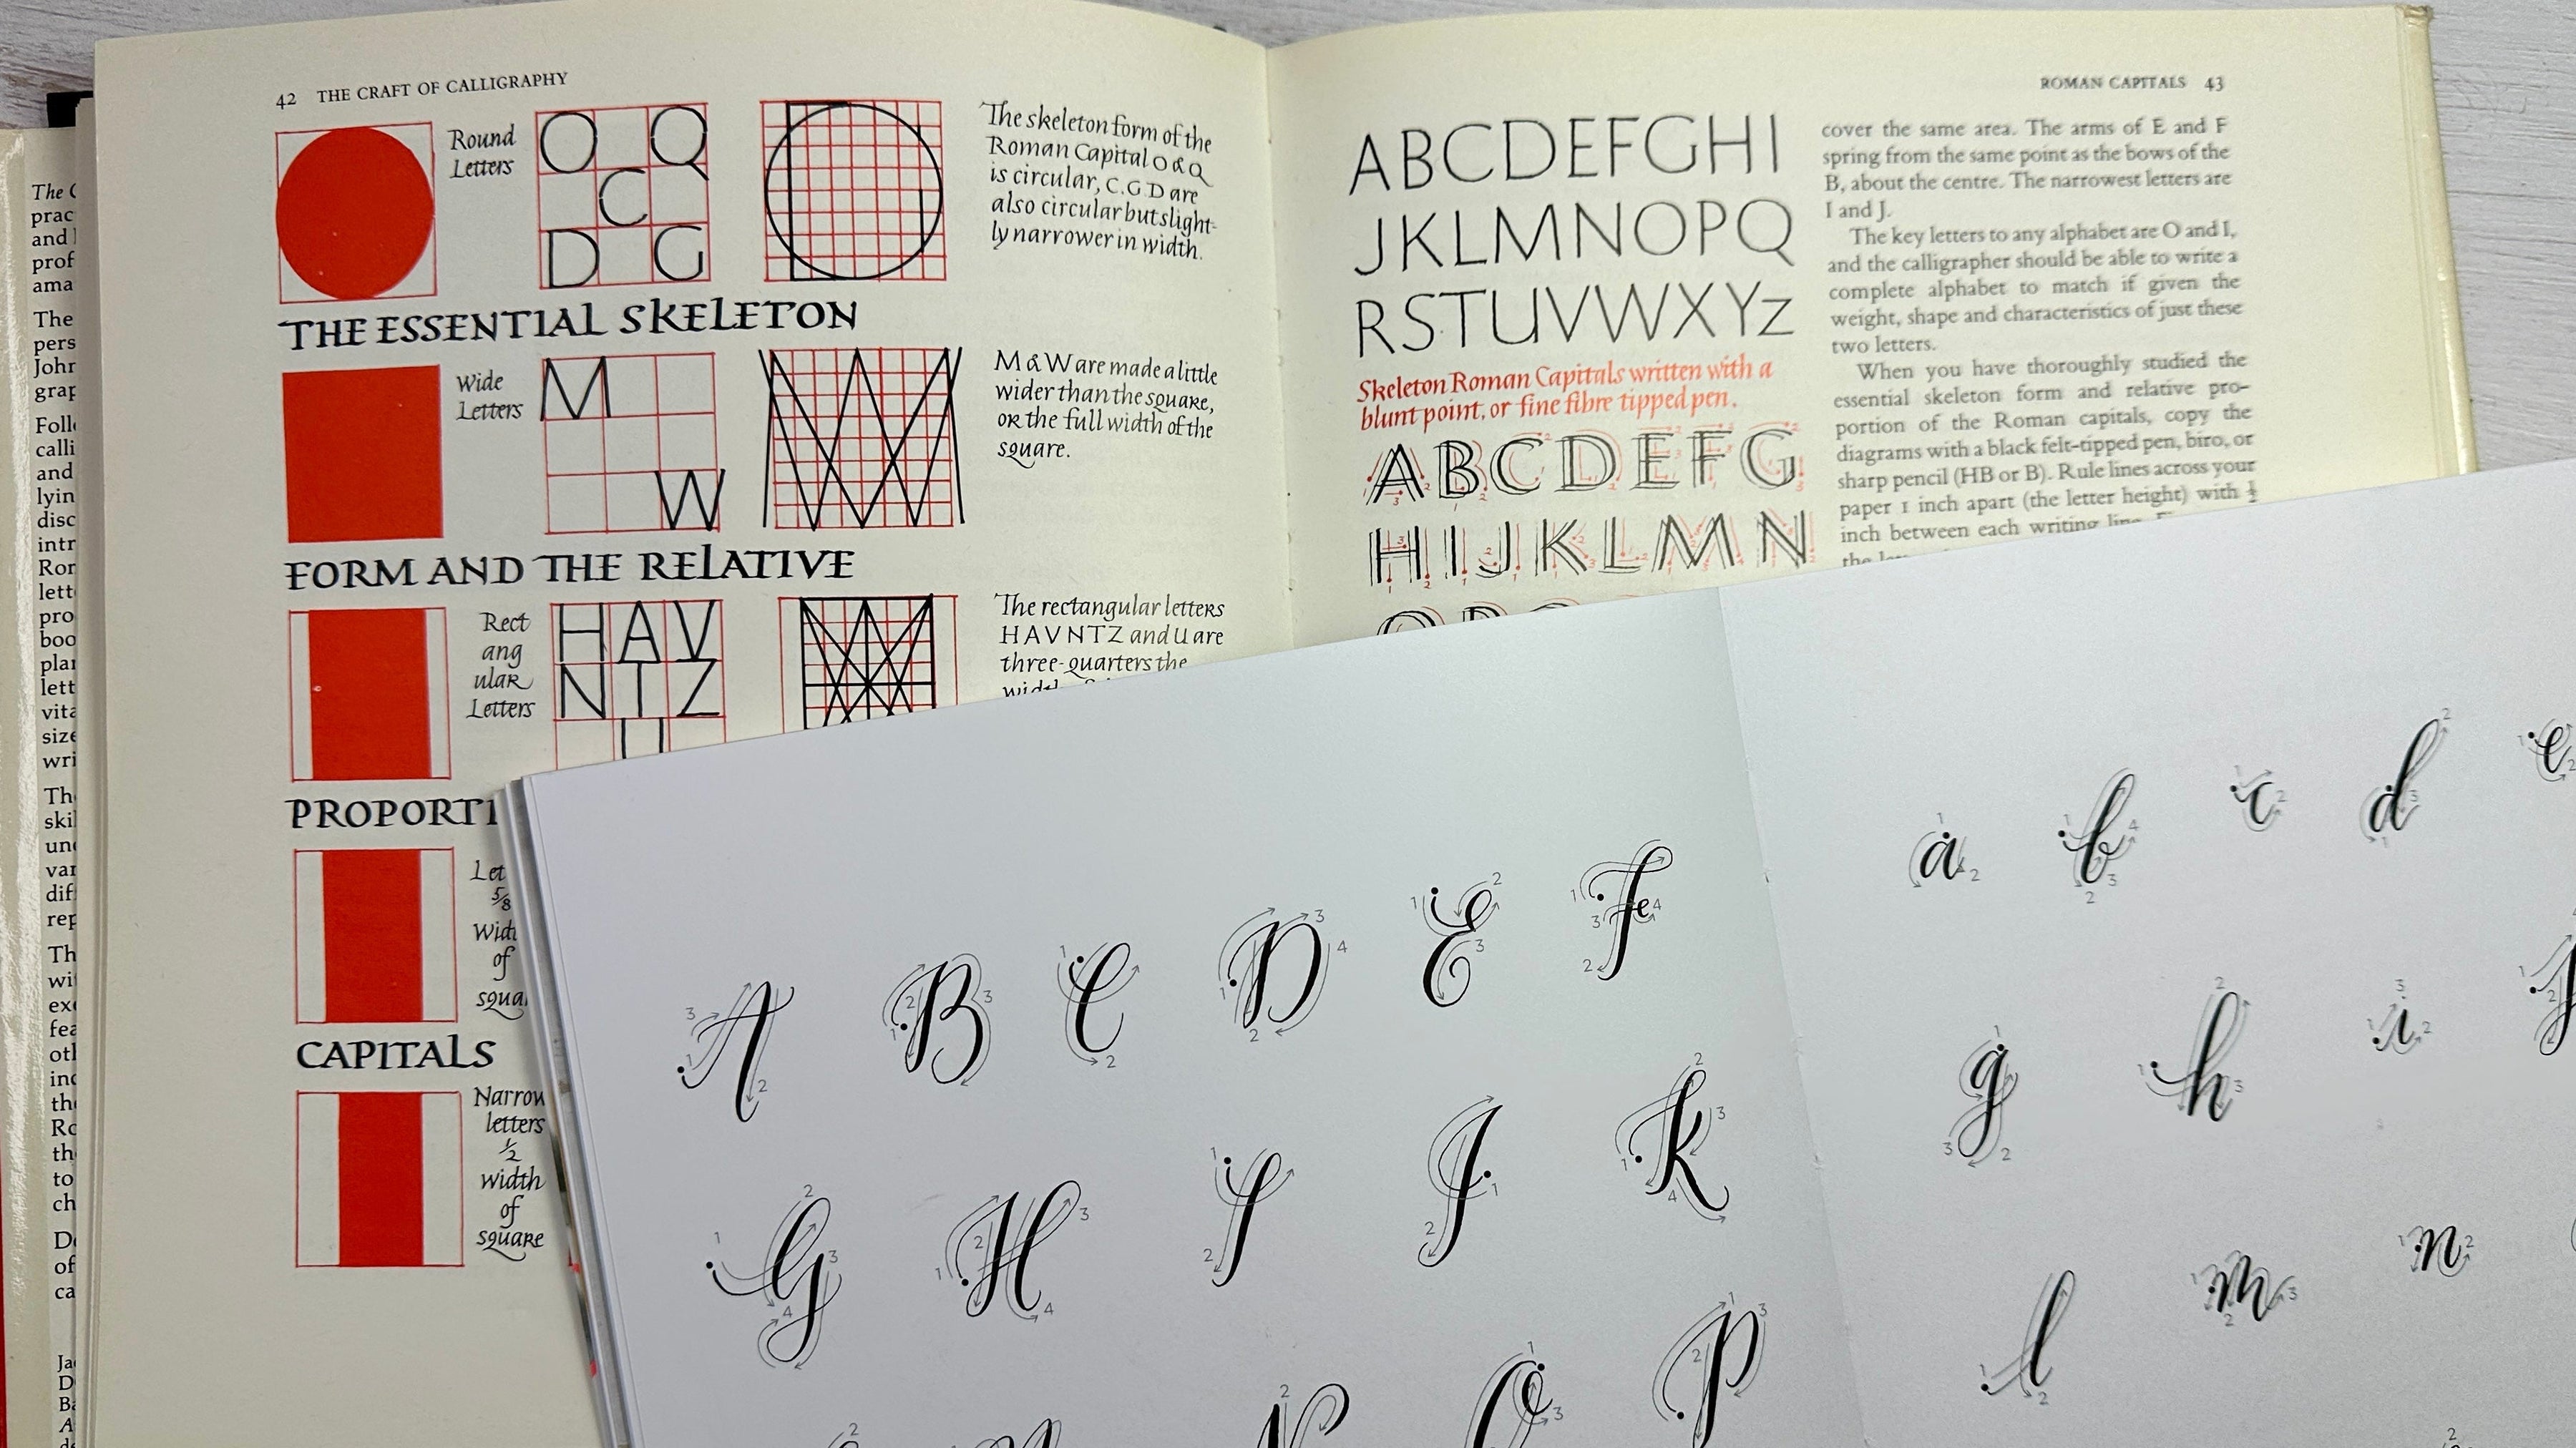 42 THE CRAFT OF CALLIGRAPHY
Round
Letters
O Q
C
D G
The skeleton form of the
Roman Capital O & Q
is circular, C.G.D are
also circular but slight-
ly narrower in width.
THE ESSENTIAL SKELETON
Wide
Letters
M
W
M & W are made a little
wider than the square,
or the full width of the
square.
FORM AND THE RELATIVE
Rect
ang
ular
Letters
H A V
N T Z
U
The rectangular letters
H A V N T Z and U are
three-quarters the
PROPORTI
Let
5/8
Widt
of
squa
CAPITALS
Narrow
letters
1/2
width
of
square
ROMAN CAPITALS 43
ABCDEFGHI
JKLMNOPQ
RSTUVWXYZ
Skeleton Roman Capitals written with a
blunt point, or fine fibre tipped pen.
ABCDEFG
HIJKLMN
cover the same area. The arms of E and F
spring from the same point as the bows of the
B, about the centre. The narrowest letters are
I and J.
The key letters to any alphabet are O and I,
and the calligrapher should be able to write a
complete alphabet to match if given the
weight, shape and characteristics of just these
two letters.
When you have thoroughly studied the
essential skeleton form and relative pro-
portion of the Roman capitals, copy the
diagrams with a black felt-tipped pen, biro, or
sharp pencil (HB or B). Rule lines across your
paper 1 inch apart (the letter height) with ½
inch between each writing line.
The
prac
and
prof
ama
The
pers
John
grap
Follo
calli
and
lyin
disc
intr
Ror
lett
pro
boo
plan
lett
vita
size
wri
Th
skil
und
var
dif
rep
Th
wi
exe
fea
oth
inc
the
Ro
th
to
ch
De
of
ca
Ja
D
Ba
A
A B C D E F
G H I J K
N O P
a b c d e
g h i j
l m n